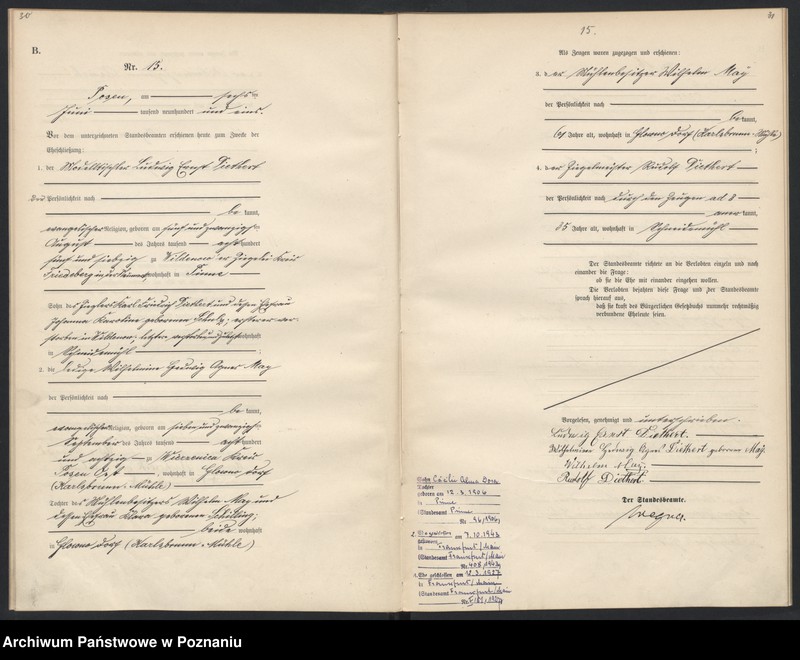 30
B.
Nr. 13.
Posen, am sechsten
Juni tausend neunhundert und eins.
Vor dem unterzeichneten Standesbeamten erschienen heute zum Zwecke der
Eheschließung:
1. der Modelltischler Ludwig Ernst Diethert
der Persönlichkeit nach
be kannt,
evangelischer Religion, geboren am fünf und zwanzigsten
August des Jahres tausend acht hundert
fünf und siebzig zu Ziegelei Kreis
Friedeberg in der Neumark wohnhaft in Pinne
Sohn des Zieglers Karl Ludwig Diethert und dessen Ehefrau
Johanna Karoline geborenen Schulz, ersterer ver-
storben in letztere wohnhaft
in Schneidemühl
2. die ledige Wilhelmine Hedwig Agnes May
der Persönlichkeit nach
be kannt,
evangelischer Religion, geboren am sieben und zwanzigsten
September des Jahres tausend acht hundert
und achtzig zu Wierzenica Kreis
Posen Ost, wohnhaft in Glowno Dorf
(Karlsbrunn-Mühle)
Tochter des Mühlenbesitzers Wilhelm May und
dessen Ehefrau Klara geborenen Schilling,
beide wohnhaft
in Glowno Dorf (Karlsbrunn-Mühle)
15.
31
Als Zeugen waren zugezogen und erschienen:
3. der Mühlenbesitzer Wilhelm May
der Persönlichkeit nach
be kannt,
61 Jahre alt, wohnhaft in Glowno Dorf (Karlsbrunn-Mühle)
;
4. der Ziegelmeister Rudolf Diethert
der Persönlichkeit nach durch den Zeugen ad 3
aner kannt,
35 Jahre alt, wohnhaft in Schneidemühl
Der Standesbeamte richtete an die Verlobten einzeln und nach
einander die Frage:
ob sie die Ehe mit einander eingehen wollen.
Die Verlobten bejahten diese Frage und der Standesbeamte
sprach hierauf aus,
daß sie kraft des Bürgerlichen Gesetzbuchs nunmehr rechtmäßig
verbundene Eheleute seien.
Vorgelesen, genehmigt und unterschrieben.
Ludwig Ernst Diethert.
Wilhelmine Hedwig Agnes Diethert geborene May.
Wilhelm May.
Rudolf Diethert
Der Standesbeamte.
Tochter
geboren am 12.3.1906
in Pinne
(Standesamt Pinne
Nr. 36/1906)
2. Ehe geschlossen am 7.10.1943
in Frankfurt/Main
(Standesamt Frankfurt/Main
Nr. 408/1943)
1. Ehe geschlossen am 12.3.1927
in Frankfurt/Main
(Standesamt Frankfurt/Main
Archiwum Państwowe w Poznaniu